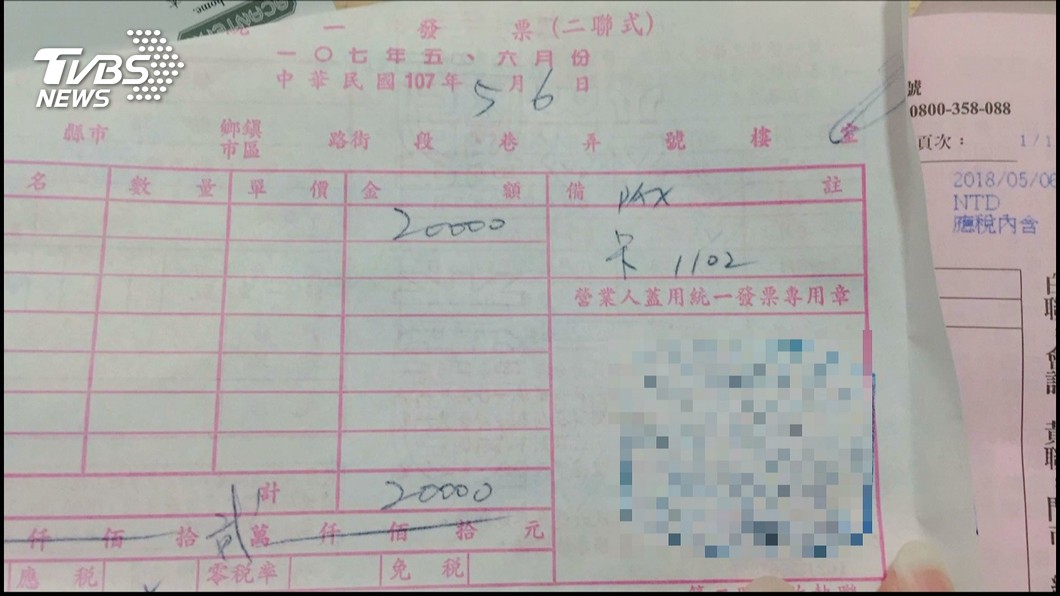 TVBS
NEWS
home.
一 發 票(二聯式)
一〇七年五、六月份
中華民國107年 5 月 6 日
縣市 鄉鎮市區 路街 段 巷 弄 號 樓 室
名 數 量 單 價 金 額 備 註
20000 PAX
卡 1102
營業人蓋用統一發票專用章
計 20000
仟 佰 拾 貳 萬 仟 佰 拾 元
應 稅 零稅率 免 稅
號
0800-358-088
頁次： 1/1
2018/05/06
NTD
應稅內含